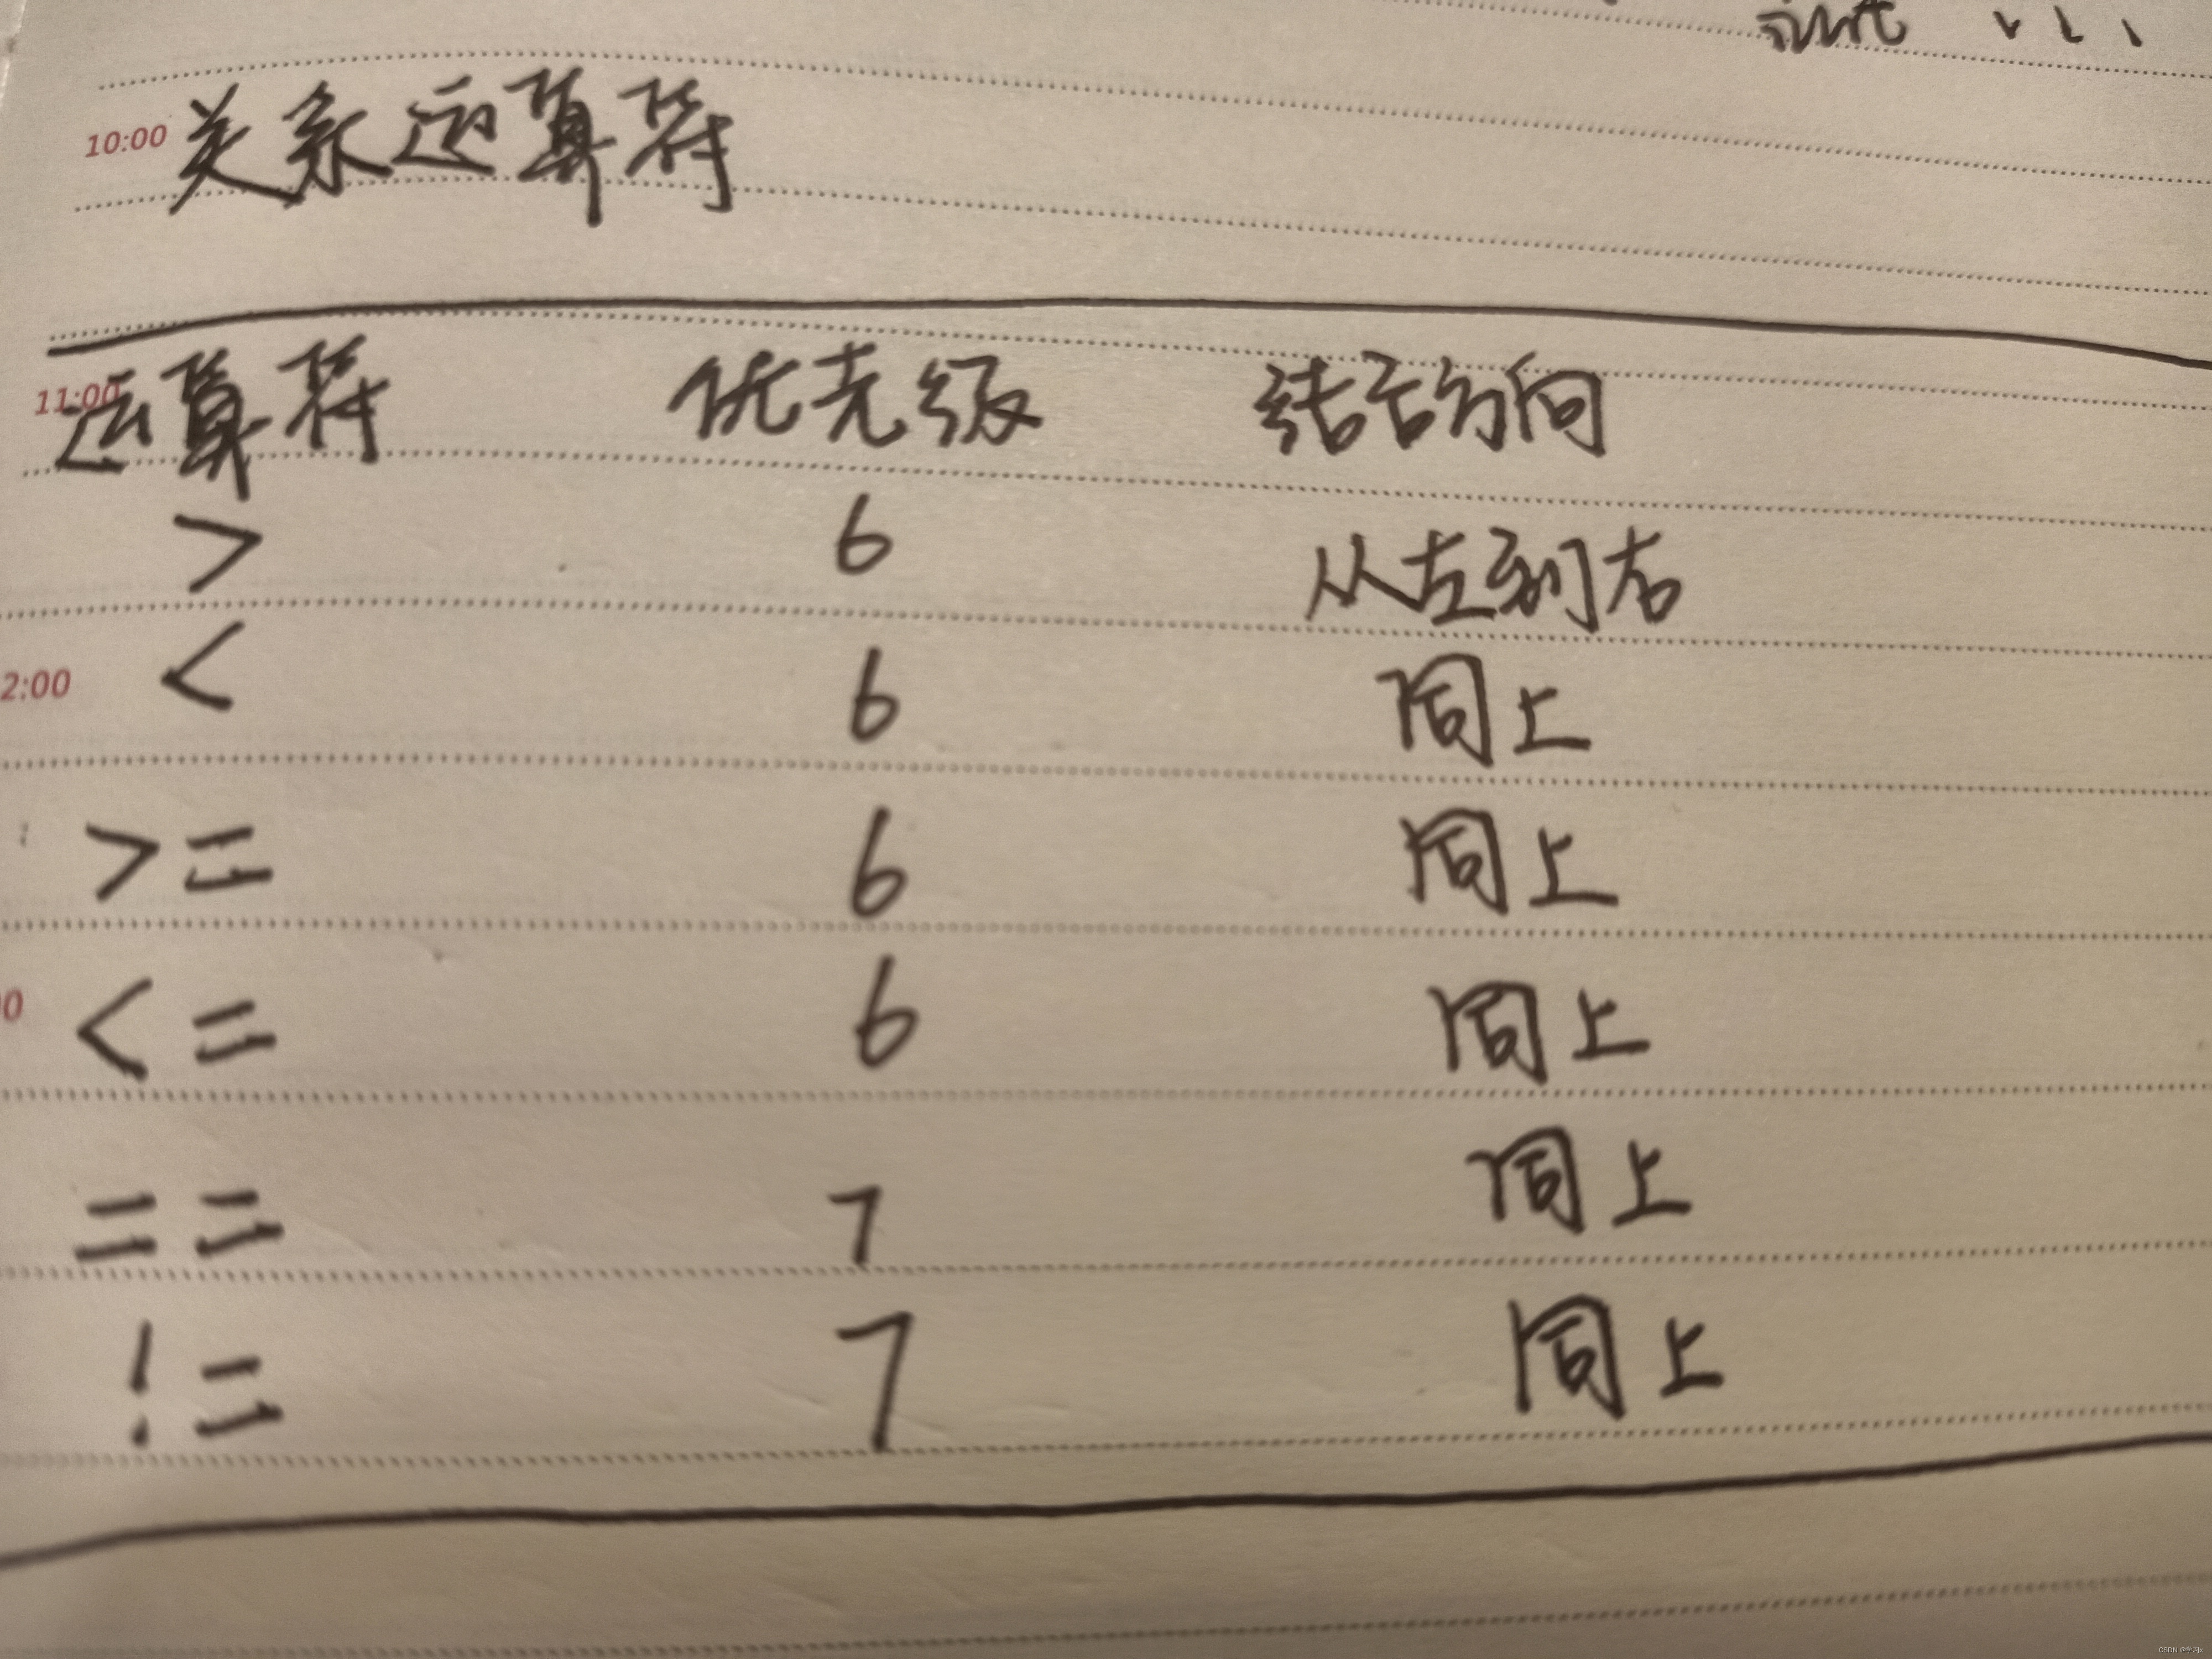 10:00 关系运算符
11:00 运算符 优先级 结合方向
> 6 从左到右
2:00 < 6 同上
>= 6 同上
<= 6 同上
== 7 同上
!= 7 同上
CSDN @学习x